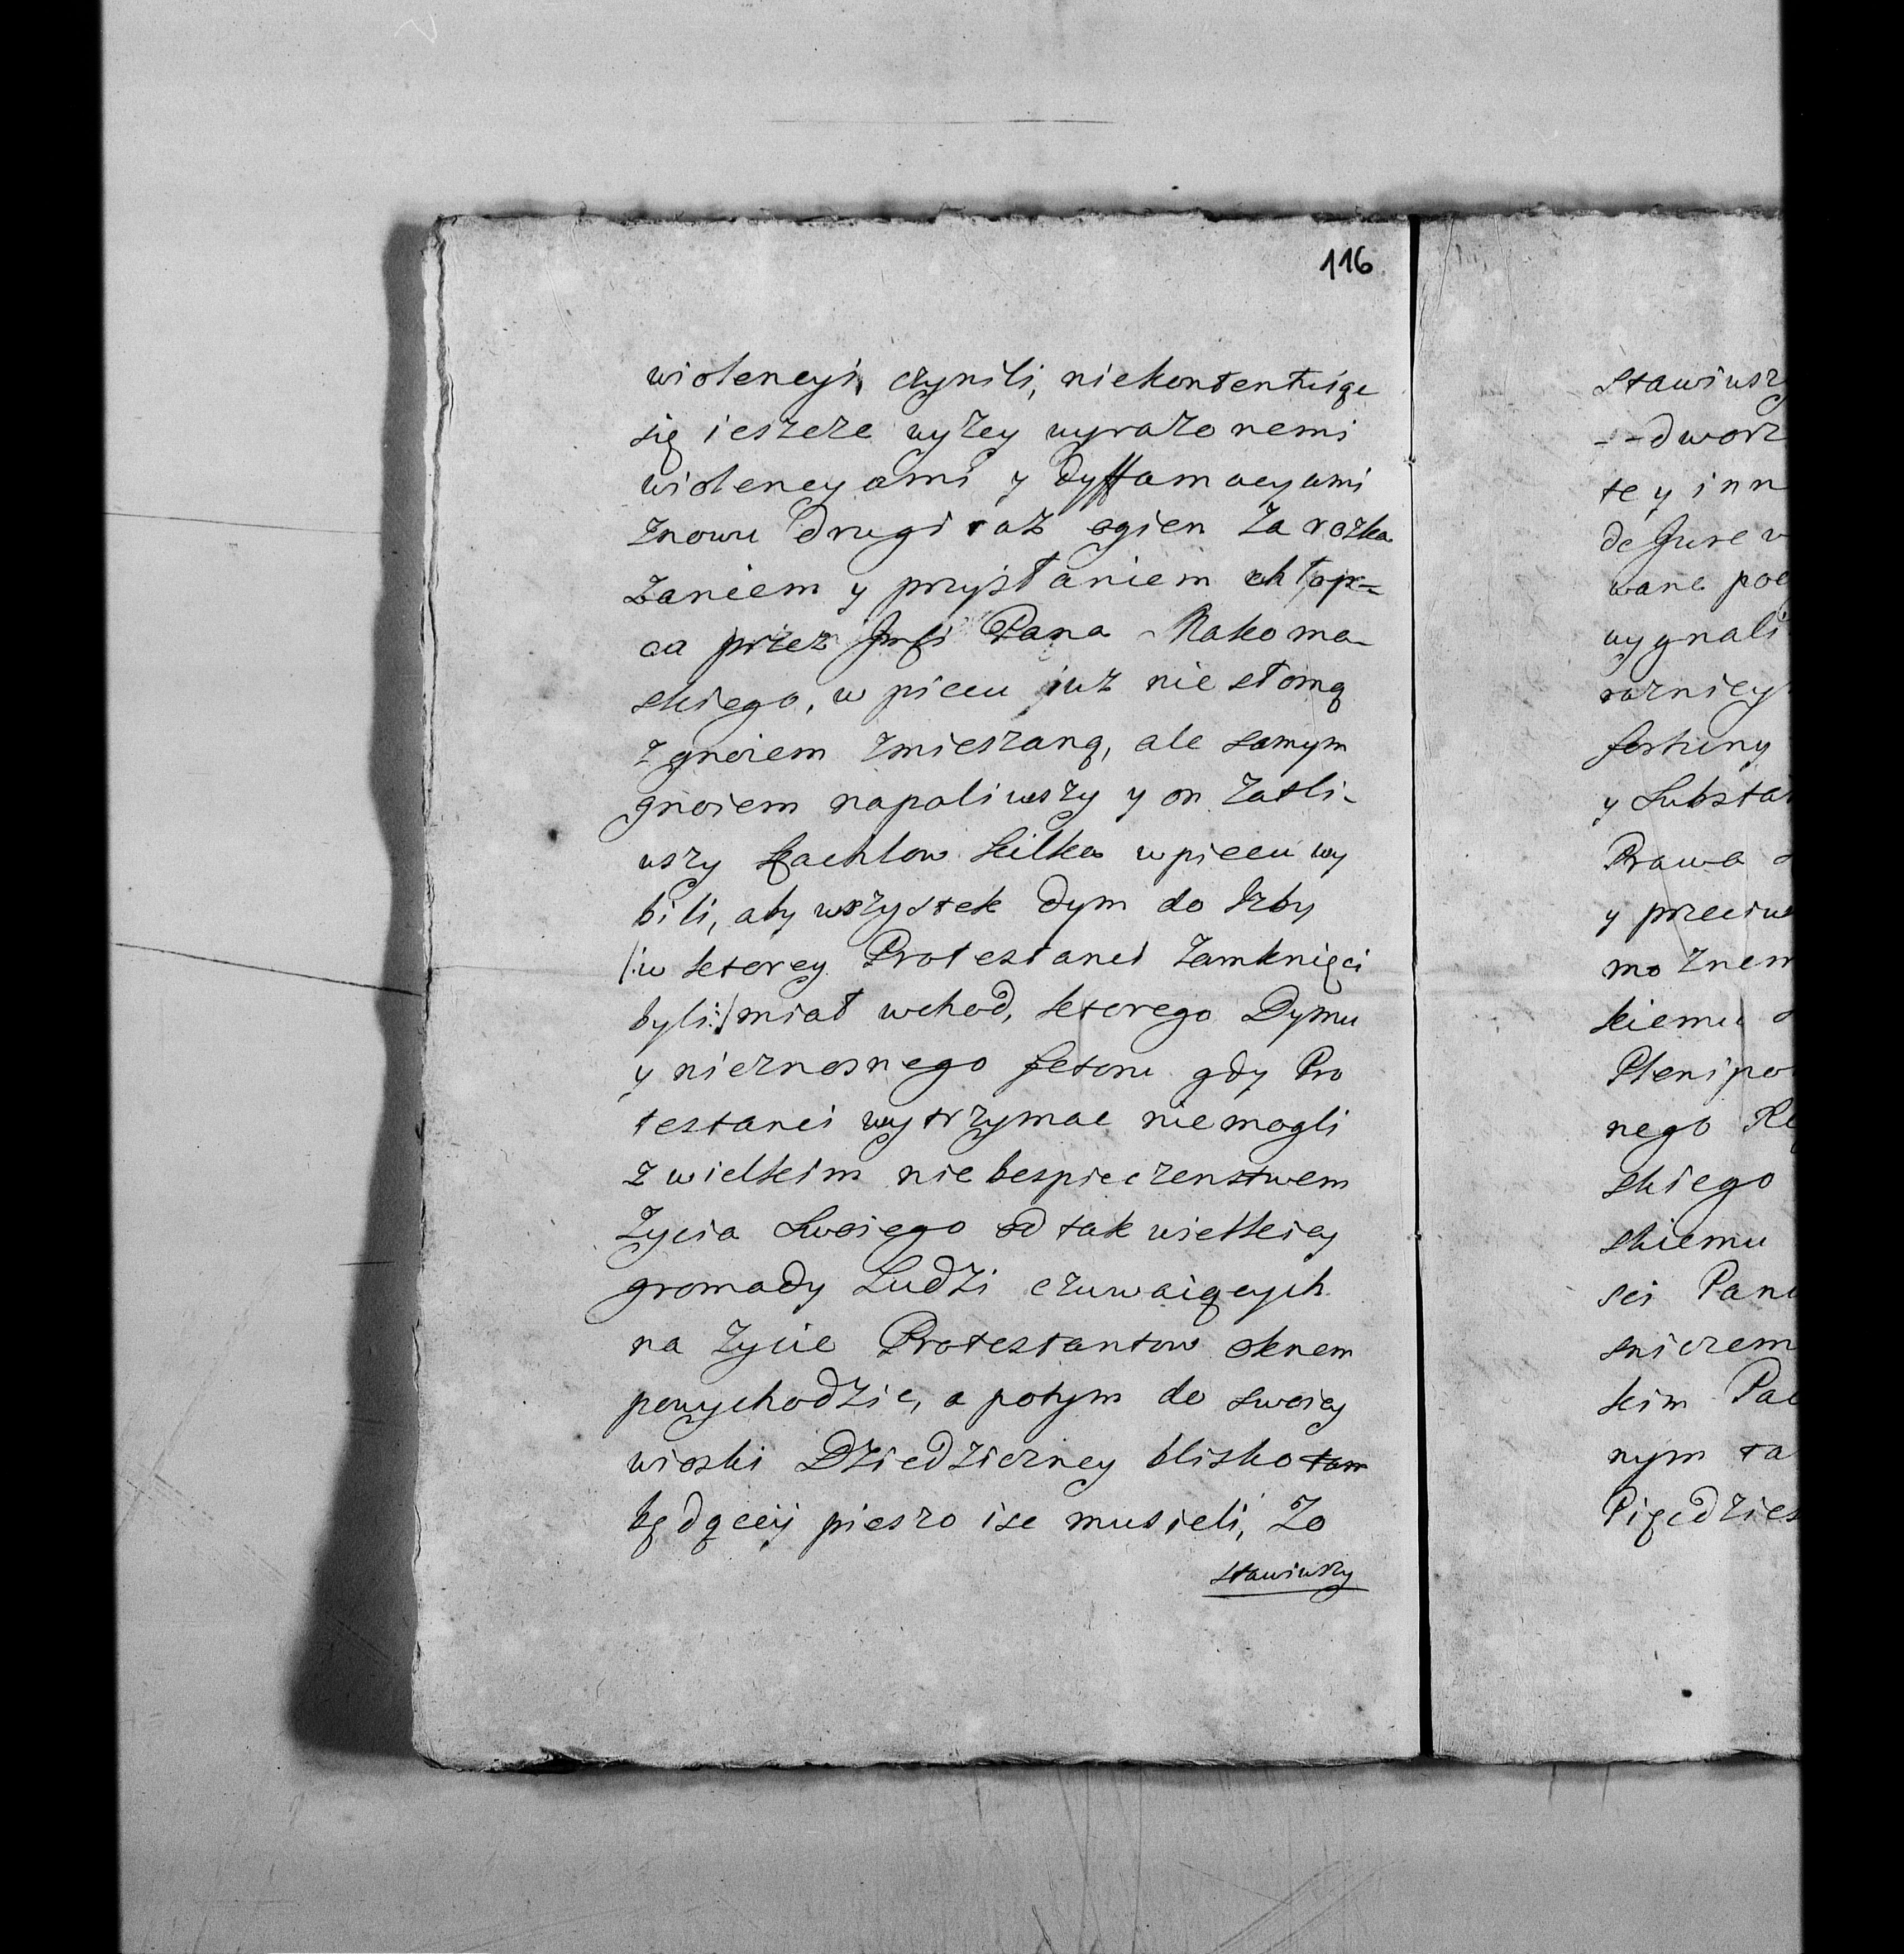 116
wiolencyi, czynili, niekontentuiąc
się ieszcze wyzey wyrazonemi
wiolencyami y dyffamacyami
Znowu drugi raz ogien Za rozka
Zaniem y przysłaniem chłop=
ca przez Pana Makoma-
skiego, w piecu juz nie słomą
z gnoiem zmieszaną, ale samym
gnoiem napaliwszy y on Zatli-
wszy kachlow kilka w piecu wy
bili, aby wszystek dym do Izby
/:w ktorey Protestanci Zamknięci
byli:/ miał wchod, ktorego Dymu
y nieznosnego fetoru gdy Pro
testanci wytrzymac niemogli
z wielkim niebespieczenstwem
Zycia Swoiego od tak wielkiey
gromady Ludzi czuwaiących
na Zycie Protestantow oknem
powychodzic, a potym do swoiey
wioski Dziedziczney blisko tam
będącey pieszo isc musieli, Zo
stawiwszy
stawiwszy
--dworz
te y inn
de Jure w
wane poc
wygnali
roznicy
fortuny
y Substan
Prawa
y przeciw
mo Znem
kiemu
Plenipo
nego
skiego
skiemu
sci Pan
sniczem
kim Pa
nym ta
Pięcdzies